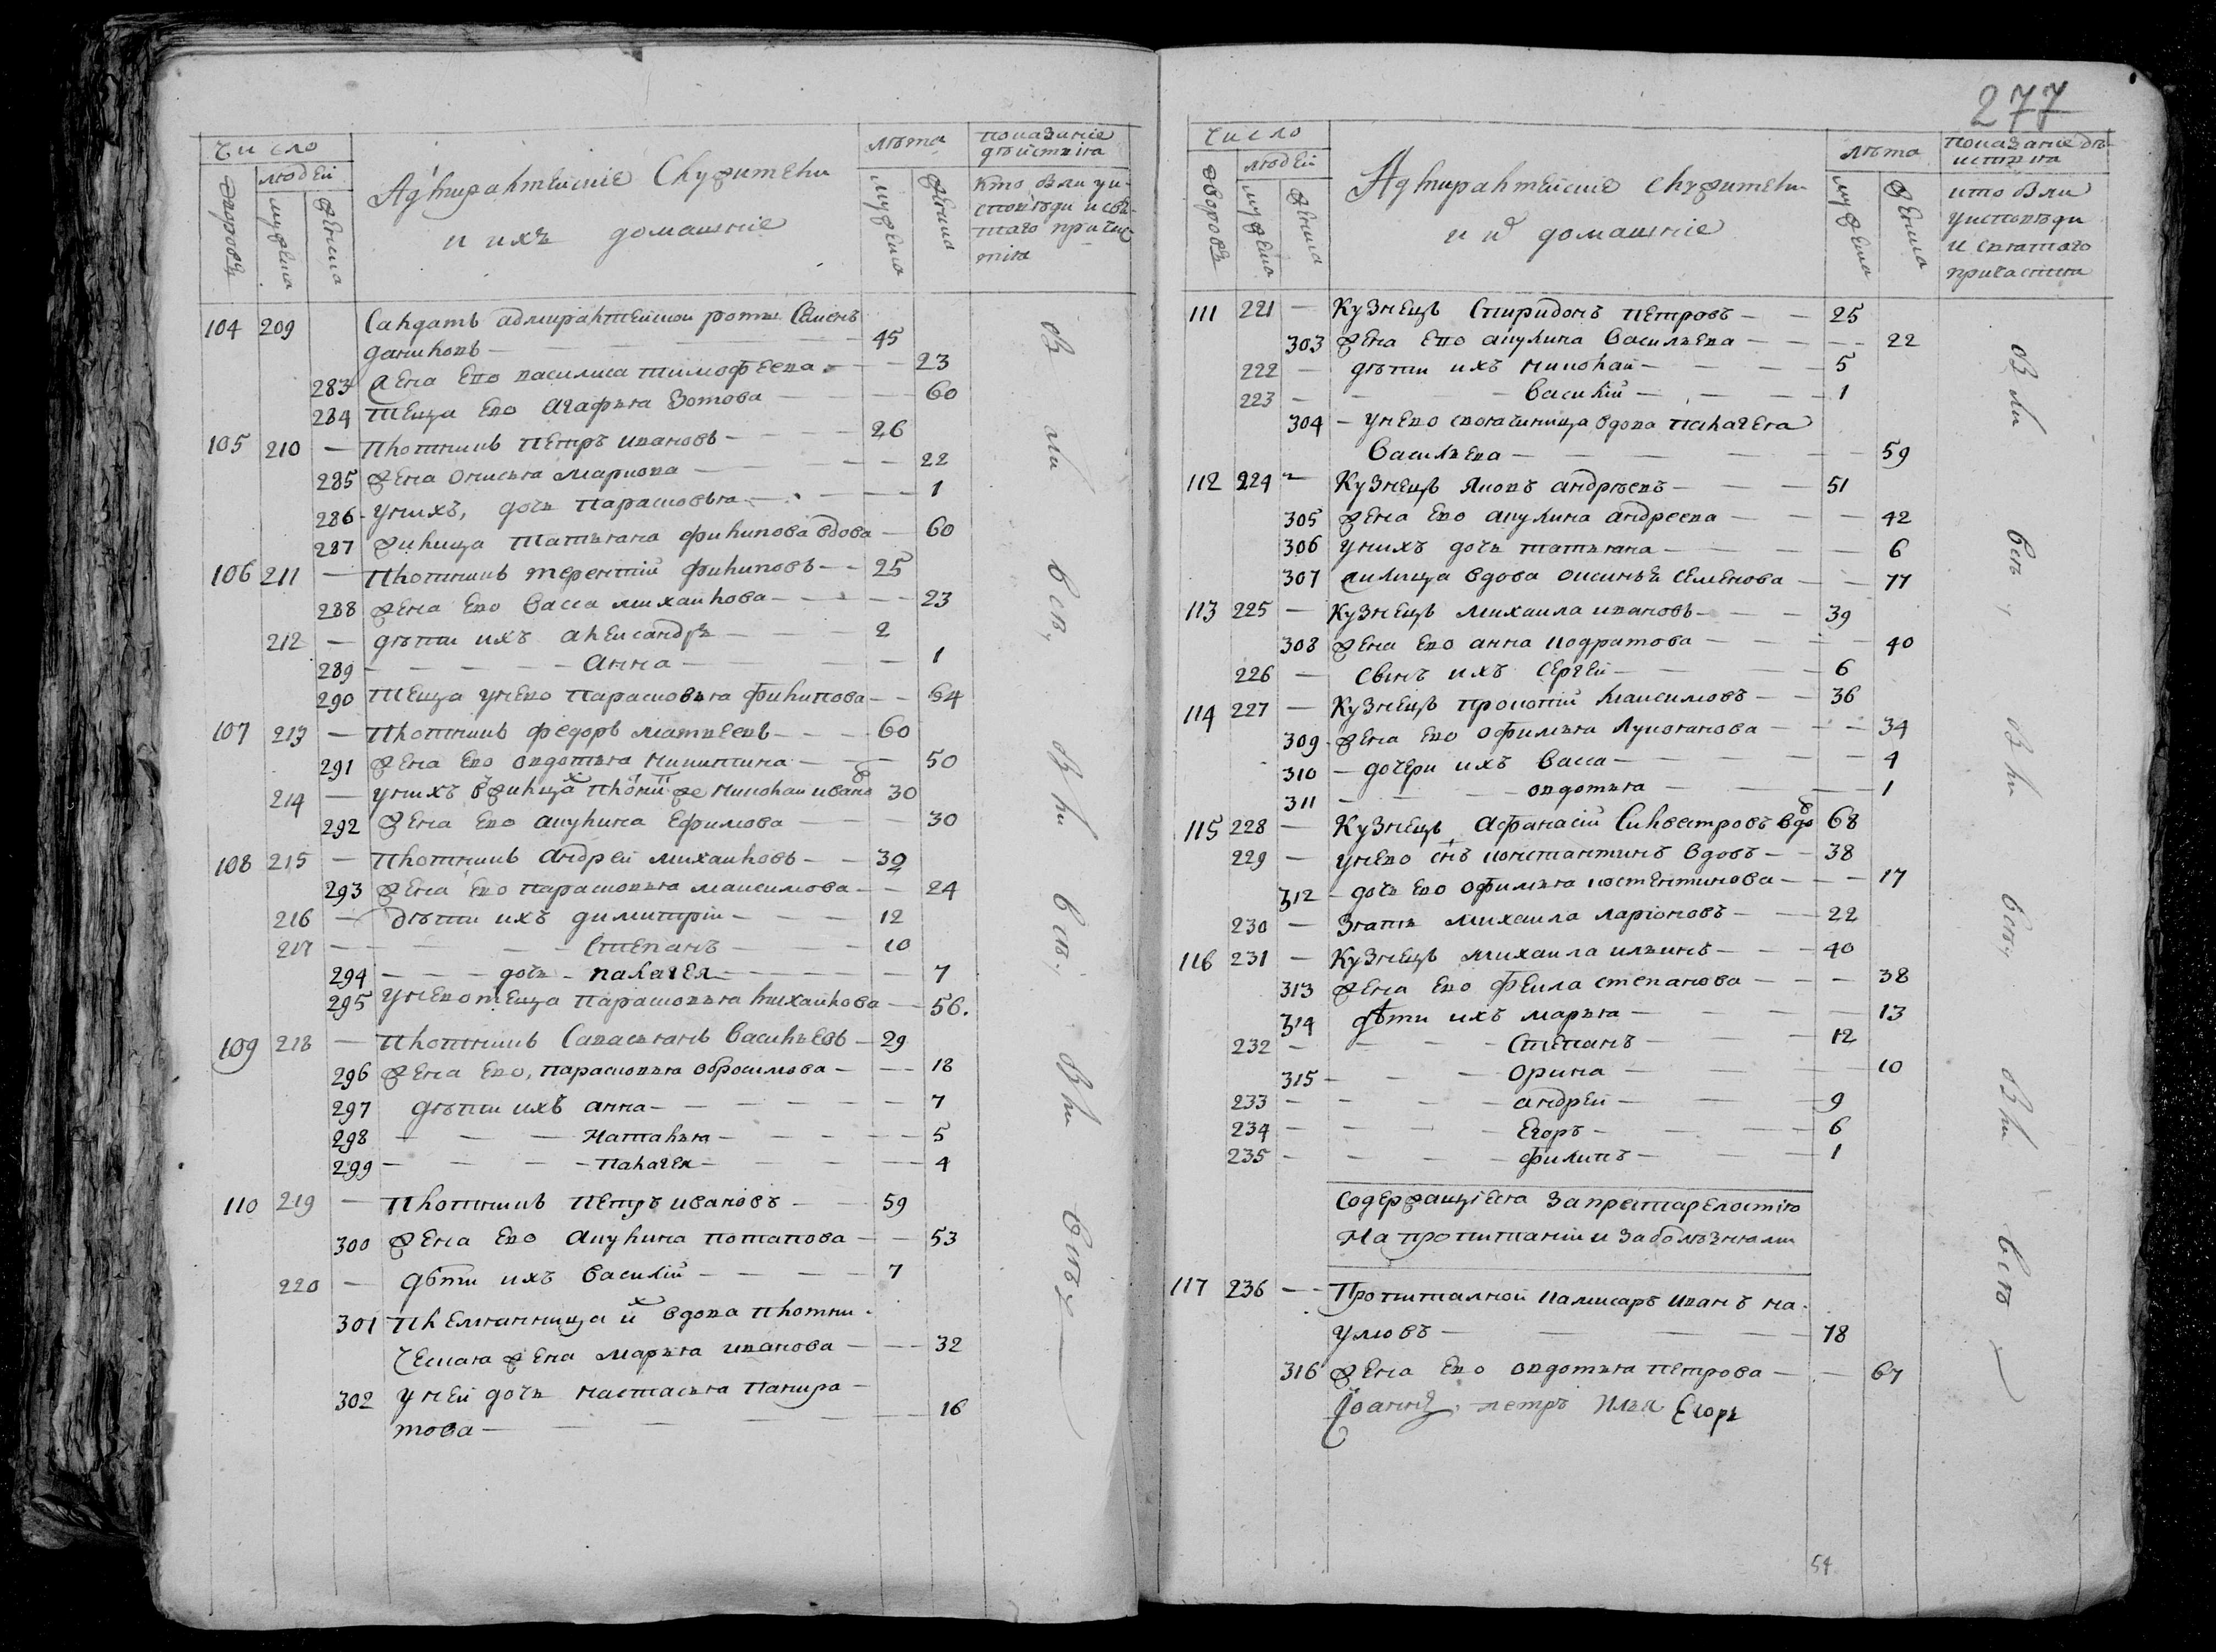 число
дворовъ
людей
мужеска
женска
Адмиралтейскіе Служители
и ихъ домашніе
лѣта
мужеска
женска
показаніе
дѣиствия
кто были у и-
споведи и свя-
таго причас-
тия
104 209 Салдатъ адмиралтейской роты Семенъ
даниловъ — 45
283 Жена ево василиса тимофеева — 23
284 Теща ево Агафья Зотова — 60
105 210 — Плотникъ Петръ ивановъ — 26
285 Жена онисья маркова — 22
286 - Унихъ, дочь парасковья — 1
287 Жилица Татьяна филипова вдова — 60
106 211 — Плотникъ терентий филиповъ — 25
288 Жена ево Васса михаилова — 23
212 — дѣти ихъ александръ — 2
289 — Анна — 1
290 Теща унево парасковья филипова — 64
107 213 — Плотникъ федоръ матвеевъ — 60
291 Жена ево овдотья никитина — 50
214 — унихъ в жилцах плотни же николаи ивано 30
292 Жена ево акулина Ефимова — 30
108 215 — Плотникъ андреи михаиловъ — 39
293 Жена ево парасковья максимова — 24
216 — дѣти ихъ димитрий — 12
217 — Степанъ — 10
294 — дочь - палагея — 7
295 Унево теща парасковья михаилова — 56.
109 218 — Плотникъ Савастьянъ Васильевъ — 29
296 Жена ево, парасковья обросимова — 18
297 дѣти ихъ анна — 7
298 — Наталья — 5
299 — палагея — 4
110 219 — Плотникъ Петръ ивановъ — 59
300 Жена ево Акулина потапова — 53
220 — дѣти ихъ Василий — 7
301 Племянница их вдова плотни-
ческая жена марья иванова — 32
302 Унеи дочь настасья панкра-
това — 16
Были всѣ, Были всѣ, Были всѣ
277
число
дворовъ
людей
мужеска
женска
Адмиралтейскіе служители
и их домашніе
лѣта
мужеска
женска
показаніе дѣ-
иствия
кто были
у исповѣди
и святаго
причастия
111 221 — Кузнецъ Спиридонъ петровъ — 25
303 Жена ево акулина Васильева — 22
222 — дѣти ихъ николай — 5
223 — Василий — 1
304 — Унево своячиница вдова палагея
Васильева — 59
112 224 — Кузнецъ Яковъ андрѣевъ — 51
305 Жена ево акулина андреева — 42
306 Унихъ дочь татьяна — 6
307 жилица вдова оксинья Семенова — 77
113 225 — Кузнецъ михаила ивановъ — 39
308 Жена ево анна кодратова — 40
226 — Сынъ ихъ Сергеи — 6
114 227 — Кузнецъ прокопий максимовъ — 36
309 - Жена ево офимья лукоянова — 34
310 — дочери ихъ Васса — 4
311 — овдотья — 1
115 228 — Кузнецъ Афанасий Силвестровъ вдов 68
229 — унево снъ константинъ вдовъ — 38
312 — дочь ево офимья костентинова — 17
230 — Зять михаила ларионовъ — 22
116 231 — Кузнецъ михаила ильинъ — 40
313 Жена ево фекла степанова — 38
314 дѣти ихъ марья — 13
232 — Степанъ — 12
315 — орина — 10
233 — андреи — 9
234 — Егоръ — 6
235 — филипъ — 1
Содержащиеся за престарелостию
На пропитании и за болѣзньми
117 236 — Пропиталной канисаръ иванъ на-
умовъ — 78
316 Жена ево овдотья петрова — 67
Иоаннъ, петръ Илья Егоръ
Были всѣ, Были всѣ, Были всѣ
54